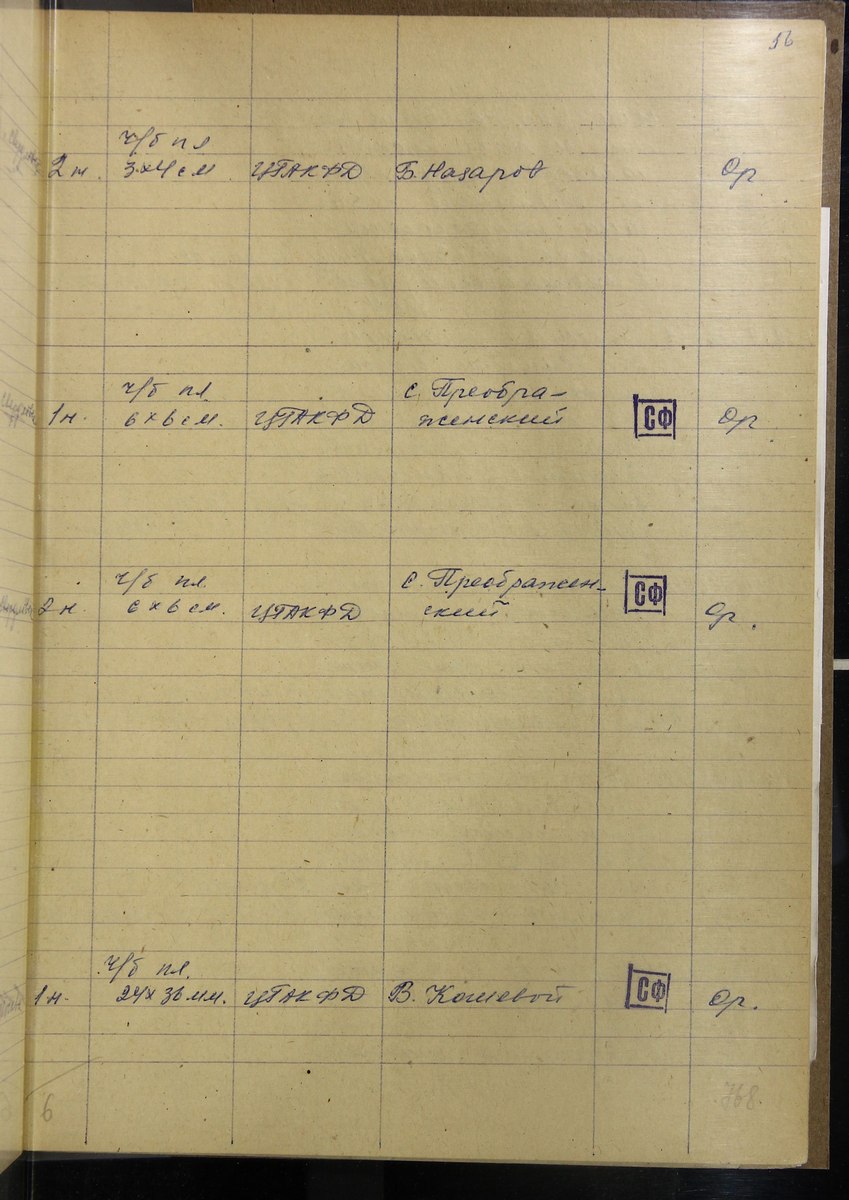 16
ч/б пл
2 н. 3×4 см ЦГАКФД Б. Назаров Ор
ч/б пл. С. Преобра-
1 н. 6×6 см. ЦГАКФД женский СФ Ор
ч/б пл. С. Преображен-
2 н. 6×6 см. ЦГАКФД ский СФ Ор.
ч/б пл.
1 н. 24×36 мм. ЦГАКФД В. Кошевой СФ Ор.
6
768